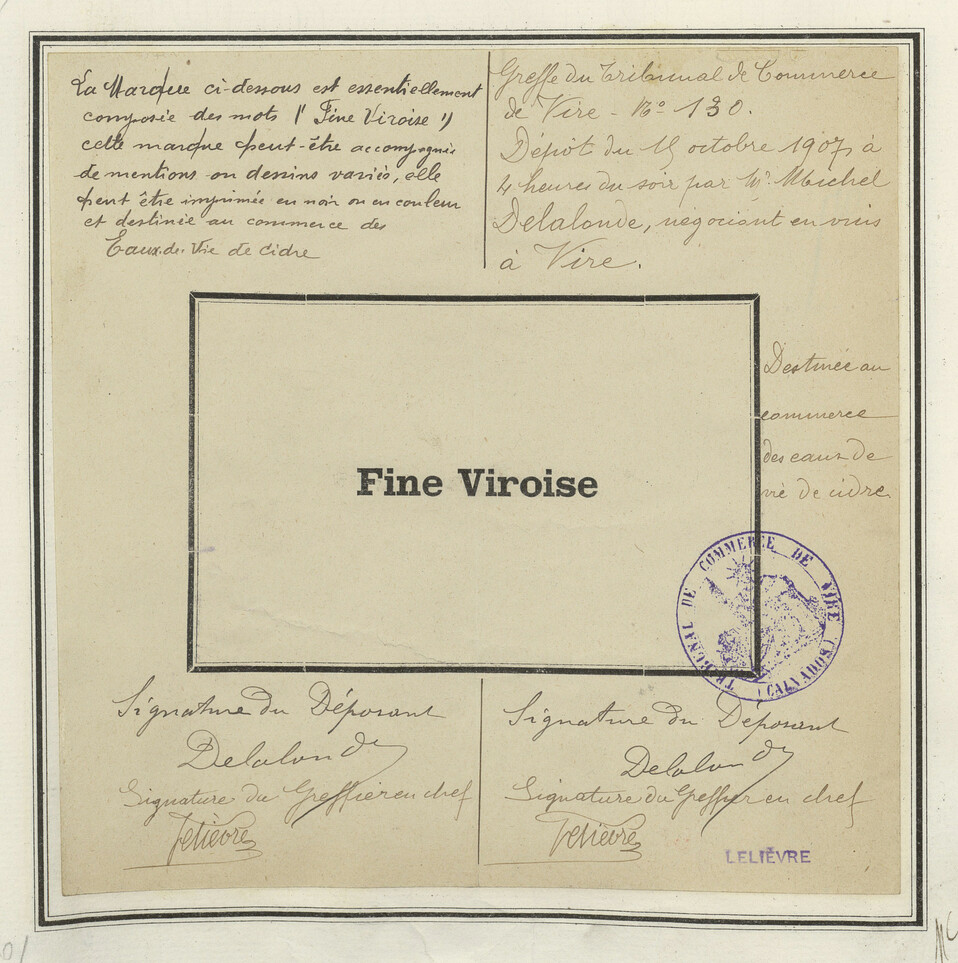 La Marque ci-dessous est essentiellement
composée des mots (" Fine Viroise ")
cette marque peut-être accompagnée
de mentions ou dessins variés, elle
peut être imprimée en noir ou en couleur
et destinée au commerce des
Eaux-de-Vie de cidre
Greffe du Tribunal de Commerce
de Vire - No 130.
Dépôt du 15 octobre 1907, à
4 heures du soir par Mr. Michel
Delalonde, négociant en vins
à Vire.
Destinée au
commerce
des eaux de
vie de cidre
Fine Viroise
TRIBUNAL DE COMMERCE DE VIRE (CALVADOS)
Signature du Déposant
Delalonde
Signature du Greffier en chef
Lelièvre
Signature du Déposant
Delalonde
Signature du Greffier en chef
Lelièvre
LELIÈVRE